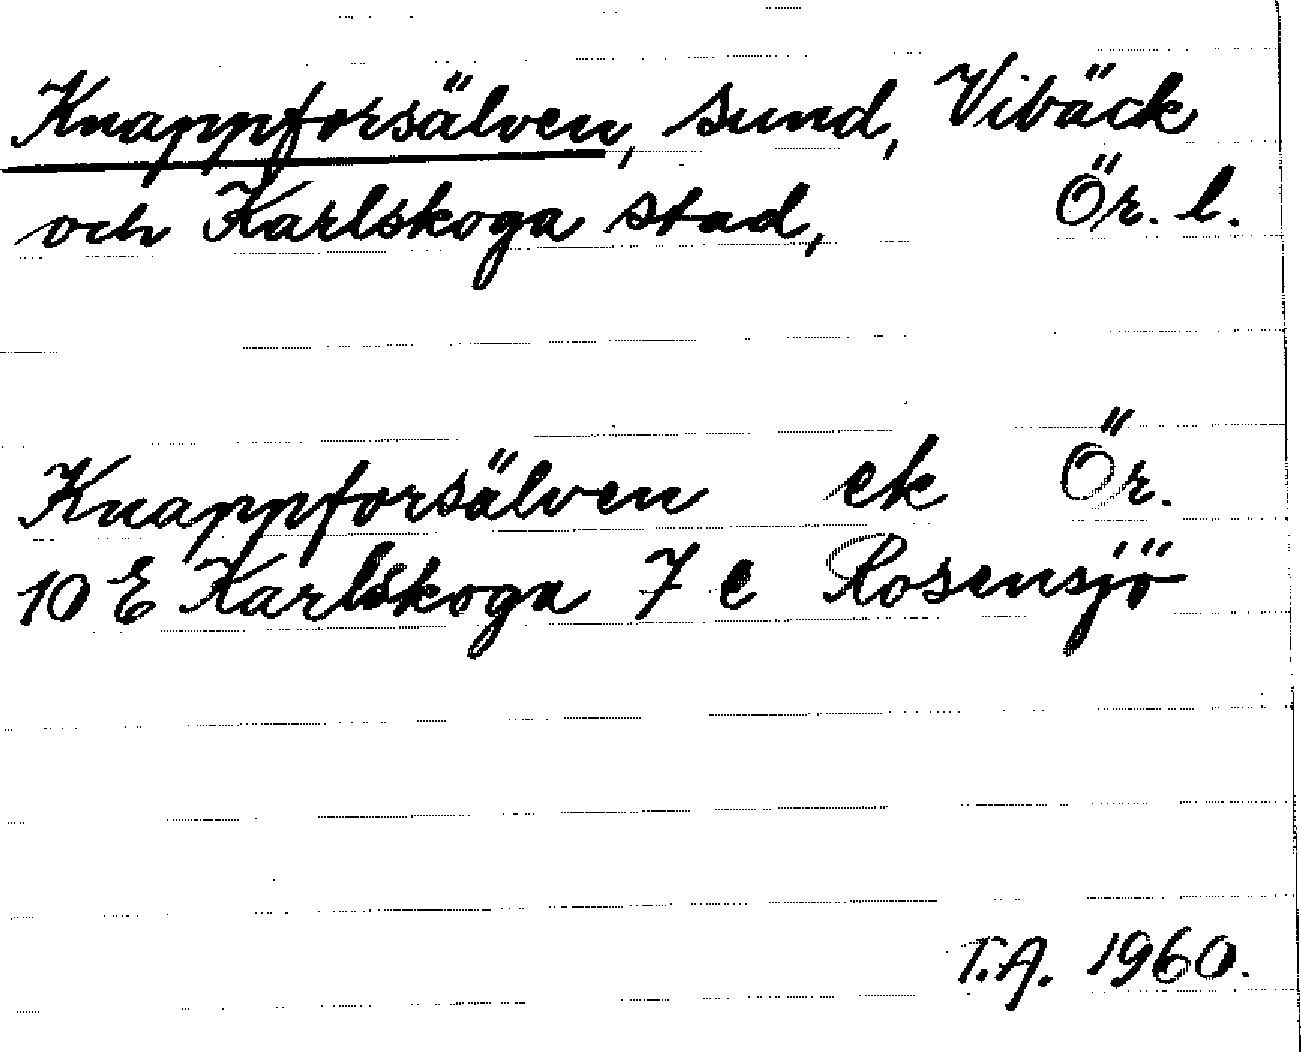 Knappforsälven, sund, Vibäck
och Karlskoga stad, Ör. l.
Knappforsälven ek Ör.
10 E Karlskoga 7 e Rosensjö
T.A. 1960.